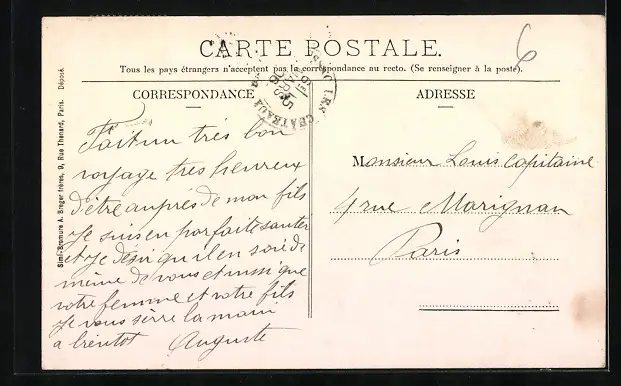 CARTE POSTALE.
Tous les pays étrangers n'acceptent pas la correspondance au recto. (Se renseigner à la poste).
6
CORRESPONDANCE
ADRESSE
Fait un très bon
voyage très heureux
d'être auprès de mon fils
Je suis en parfaite santer
et je désir qu'il en soie de
même de vous et aussi que
votre femme et votre fils
Je vous serre la main
a bientot Auguste
Monsieur Louis Capitaine
4 rue Marignan
Paris
Simili-Bromure A. Breger frères, 9, Rue Thenard, Paris. Déposé.